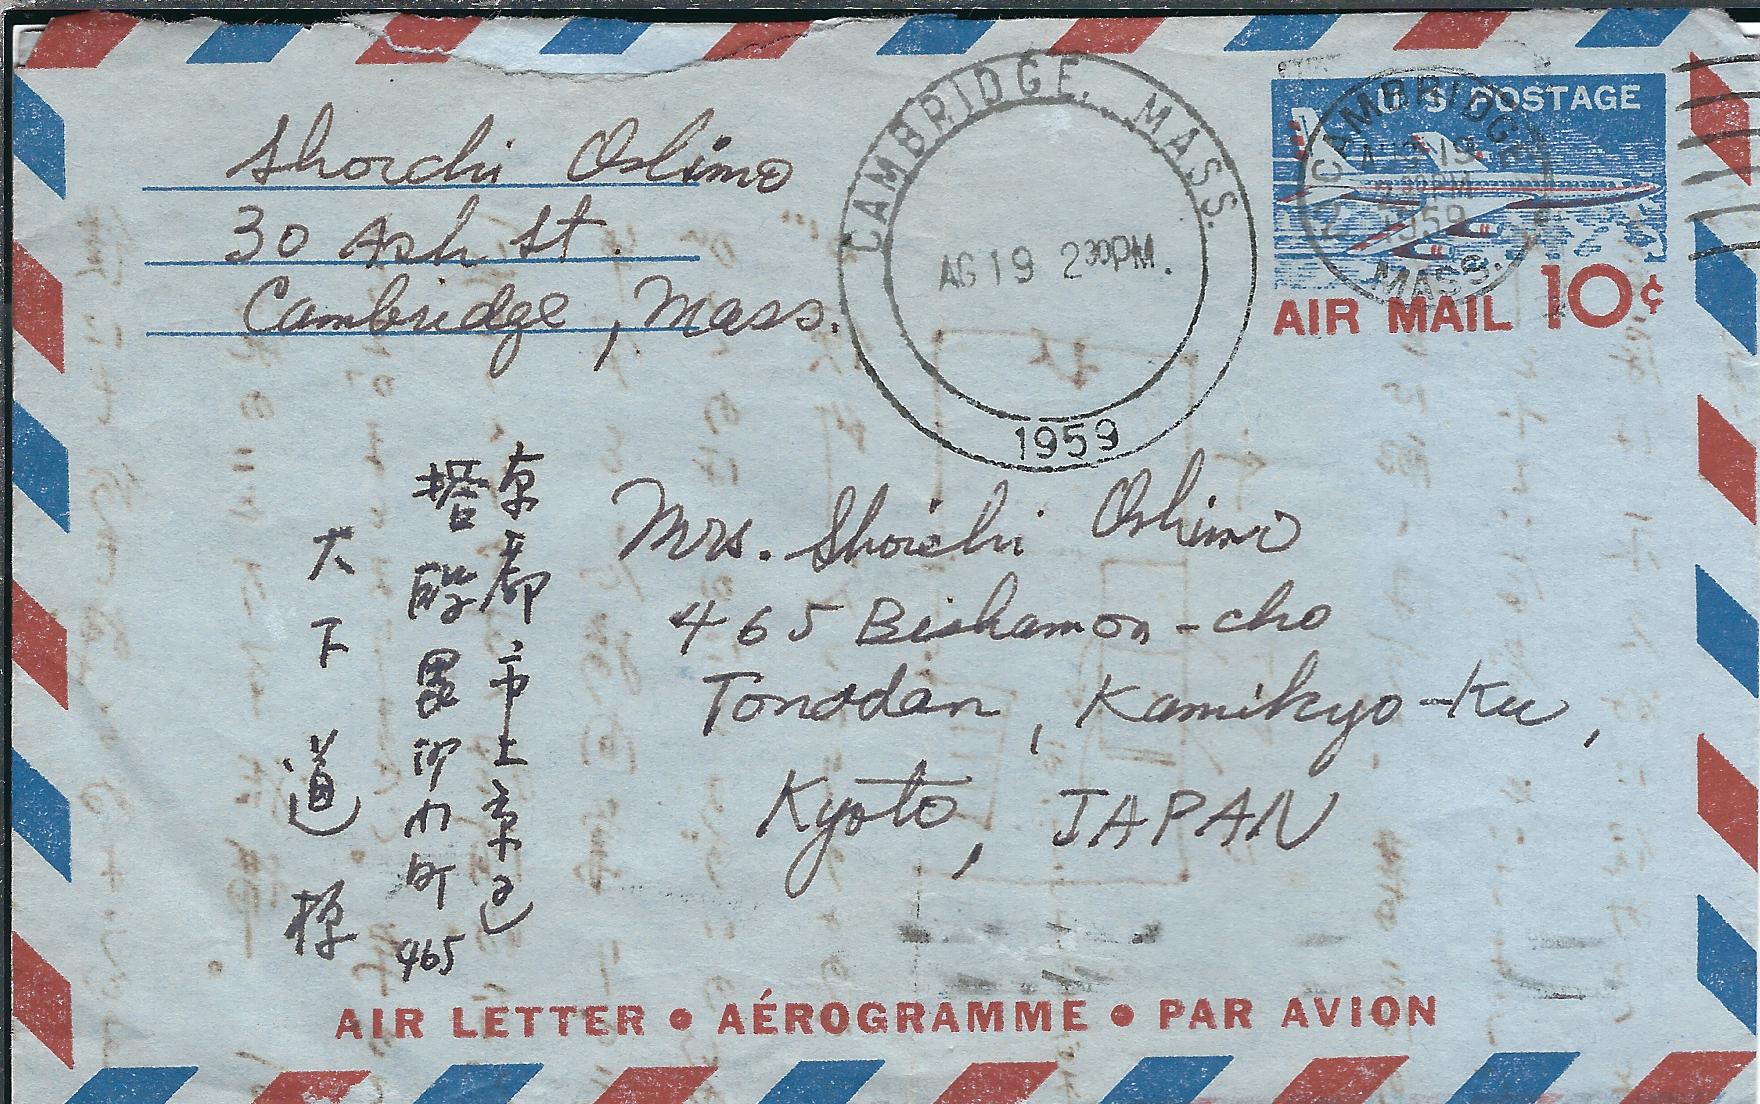 Shoichi Oshimo
30 Ash St.
Cambridge, Mass.
CAMBRIDGE, MASS.
AG 19 2 30PM.
1959
U S POSTAGE
CAMBRIDGE
AUG 19
2 30PM
1959
MASS.
AIR MAIL 10¢
Mrs. Shoichi Oshimo
465 Bishamon-cho
Tonodan, Kamikyo-Ku,
Kyoto, JAPAN
京都市上京区
塔段毘沙門町 465
大下道様
AIR LETTER • AÉROGRAMME • PAR AVION